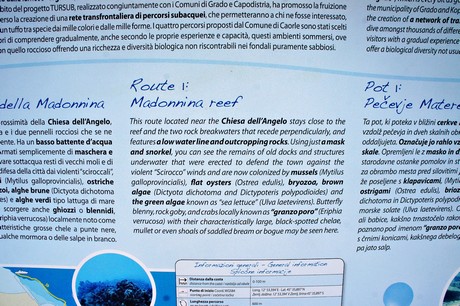 bito del progetto TURISUB, realizzato congiuntamente con i Comuni di Grado e Capodistria, ha promosso la fruizione
creazione di una rete transfrontaliera di percorsi subacquei, che permetteranno a chi ne fosse interessato,
un tuffo tra specie dai mille colori e dalle mille forme. I quattro percorsi proposti dal Comune di Caorle sono stati scelti
ori di comprendere gradualmente, anche secondo le proprie esperienze e capacità, questi ambienti sommersi, ove
on quello roccioso offrendo una ricchezza e diversità biologica non riscontrabili nei fondali puramente sabbiosi.
the municipality of Grado and Kop
creation of a network of tran
dive amongst thousands of differ
visitors with a gradual experience
offer a biological diversity not usual
della Madonnina
rossimità della Chiesa dell'Angelo,
a e i due pennelli rocciosi che se ne
Ha un basso battente d'acqua
Armati semplicemente di maschera e
vare sottacqua resti di vecchi moli e di
ifesa della città dai violenti "sciroccali",
i (Mytilus galloprovincialis), ostriche
zoi, alghe brune (Dictyota dichotoma
es) e alghe verdi tipo lattuga di mare
e scorgere anche ghiozzi o blennidi,
riphia verrucosa) localmente noto come
atteristiche grosse chele a punte nere,
ualche mormora o delle salpe in branco.
Route 1:
Madonnina reef
This route located near the Chiesa dell'Angelo stays close to the
reef and the two rock breakwaters that recede perpendicularly, and
features a low water line and outcropping rocks. Using just a mask
and snorkel, you can see the remains of old docks and structures
underwater that were erected to defend the town against the
violent "Scirocco" winds and are now colonized by mussels (Mytilus
galloprovincialis), flat oysters (Ostrea edulis), bryozoa, brown
algae (Dictyota dichotoma and Dictyopteris polypodioides) and
the green algae known as "sea lettuce" (Ulva laetevirens). Butterfly
blenny, rock goby, and crabs locally known as "granzo poro" (Eriphia
verrucosa) with their characteristically large, black-spotted chelae,
mullet or even shoals of saddled bream or bogue may be seen here.
Pot 1:
Pečevje Matere
Ta pot, ki poteka v bližini cerkve
vzdolž pečevja in dveh skalnih
odbijačev. Označuje jo rahlo
skale. Opremljeni le z masko in d
starodavne ostanke pomolov in st
za obrambo mesta pred silovitimi
je poseljen s klapavicami, (Mytilus
ostrigami (Ostrea edulis),
(Dictyota dichotoma in Dictyopteris
morske solate (Ulva laetevirens). O
ali babice, kakino tamaščkco rakovic
poznano pod imenom "granzo poro"
s črnimi konicami, kakšnega
pa jato salp.
Informazioni generali - General information
Splošne informacije
Distanza dalla costa
Punto di inizio
Lunghezza percorso